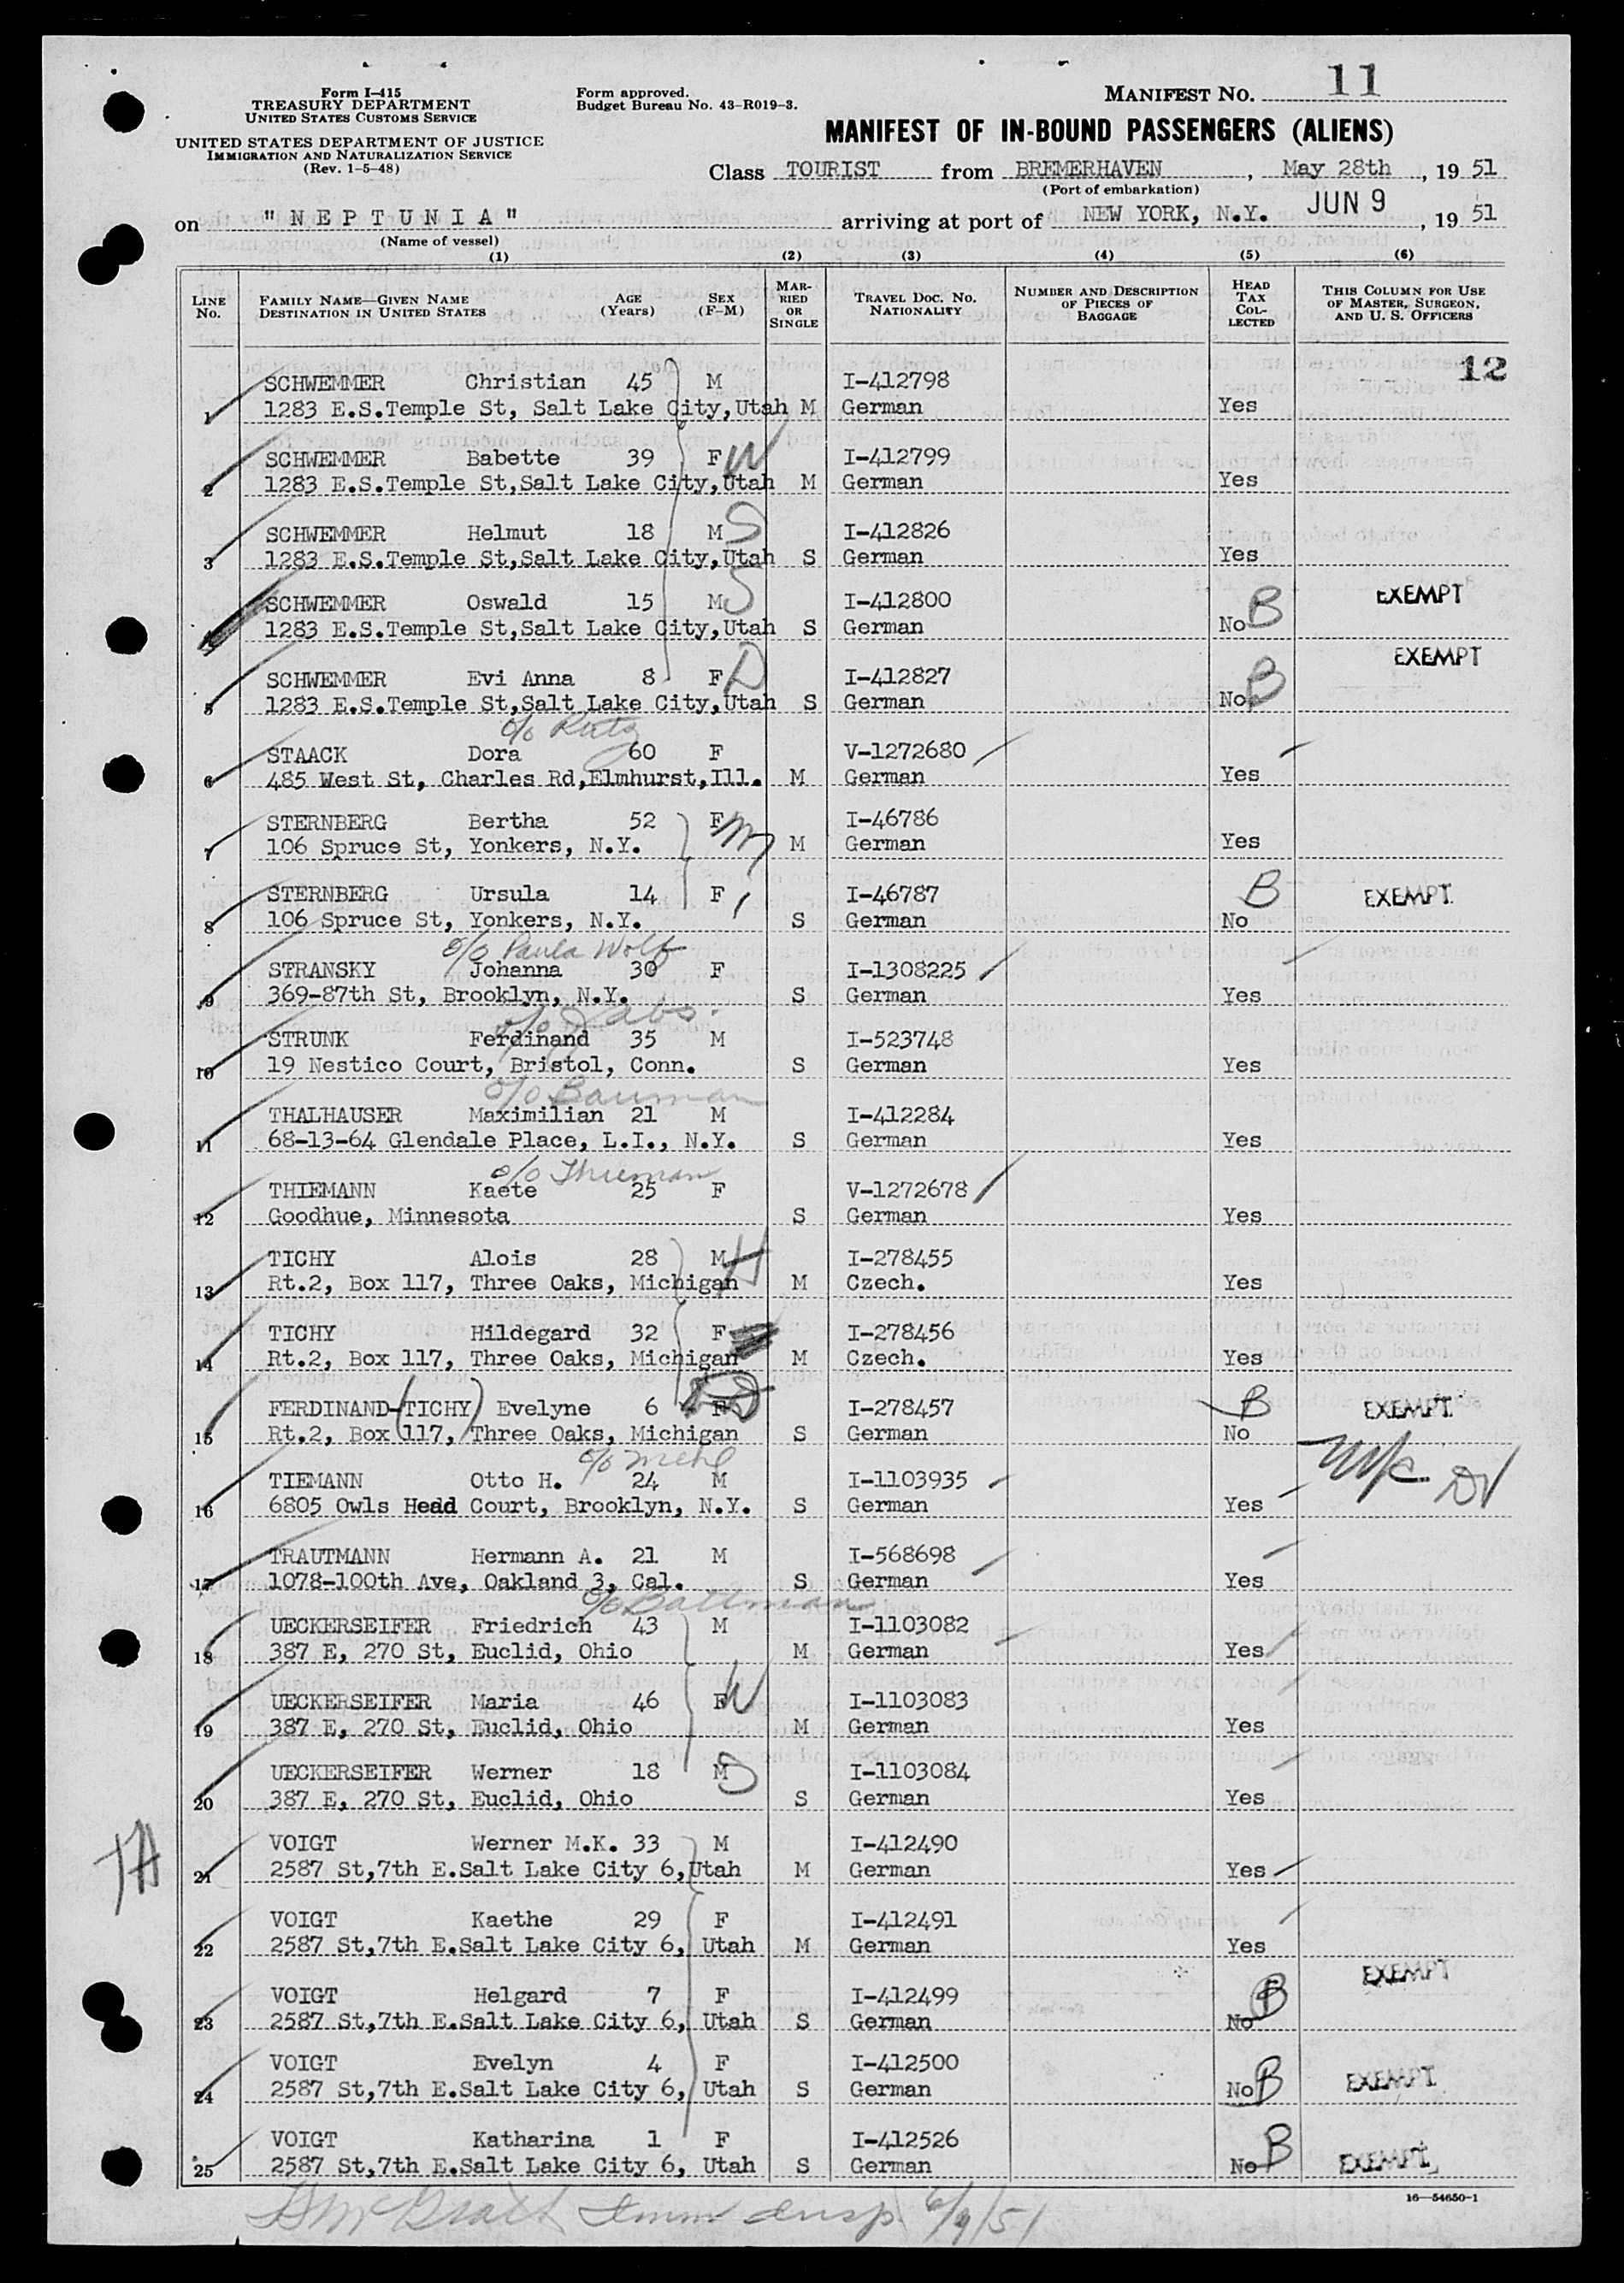 Form I-415
TREASURY DEPARTMENT
UNITED STATES CUSTOMS SERVICE
UNITED STATES DEPARTMENT OF JUSTICE
IMMIGRATION AND NATURALIZATION SERVICE
(Rev. 1-5-48)
Form approved.
Budget Bureau No. 43-R019-3.
MANIFEST NO. 11
MANIFEST OF IN-BOUND PASSENGERS (ALIENS)
Class TOURIST from BREMERHAVEN, May 28th, 19 51
(Port of embarkation)
on "NEPTUNIA" arriving at port of NEW YORK, N.Y. JUN 9, 19 51
(Name of vessel)
(1) (2) (3) (4) (5) (6)
LINE NO. FAMILY NAME—GIVEN NAME DESTINATION IN UNITED STATES AGE (Years) SEX (F-M) MARRIED OR SINGLE TRAVEL DOC. NO. NATIONALITY NUMBER AND DESCRIPTION OF PIECES OF BAGGAGE HEAD TAX COLLECTED THIS COLUMN FOR USE OF MASTER, SURGEON, AND U. S. OFFICERS
12
SCHWEMMER Christian 45 M I-412798
1 1283 E.S.Temple St, Salt Lake City,Utah M German Yes
SCHWEMMER Babette 39 F W I-412799
2 1283 E.S.Temple St,Salt Lake City,Utah M German Yes
SCHWEMMER Helmut 18 M S I-412826
3 1283 E.S.Temple St,Salt Lake City,Utah S German Yes
SCHWEMMER Oswald 15 M S I-412800 B EXEMPT
1283 E.S.Temple St,Salt Lake City,Utah S German No
SCHWEMMER Evi Anna 8 F D I-412827 B EXEMPT
5 1283 E.S.Temple St,Salt Lake City,Utah S German No
c/o Rutz
STAACK Dora 60 F V-1272680
6 485 West St, Charles Rd,Elmhurst,Ill. M German Yes
STERNBERG Bertha 52 F M I-46786
7 106 Spruce St, Yonkers, N.Y. M German Yes
STERNBERG Ursula 14 F I-46787 B EXEMPT
8 106 Spruce St, Yonkers, N.Y. S German No
c/o Paula Wolf
STRANSKY Johanna 30 F I-1308225
9 369-87th St, Brooklyn, N.Y. S German Yes
c/o Jabs.
STRUNK Ferdinand 35 M I-523748
10 19 Nestico Court, Bristol, Conn. S German Yes
c/o Bauman
THALHAUSER Maximilian 21 M I-412284
11 68-13-64 Glendale Place, L.I., N.Y. S German Yes
c/o Thieman
THIEMANN Kaete 25 F V-1272678
12 Goodhue, Minnesota S German Yes
TICHY Alois 28 M H I-278455
13 Rt.2, Box 117, Three Oaks, Michigan M Czech. Yes
TICHY Hildegard 32 F I-278456
14 Rt.2, Box 117, Three Oaks, Michigan M Czech. Yes
FERDINAND-(TICHY) Evelyne 6 F D I-278457 B EXEMPT
15 Rt.2, Box 117, Three Oaks, Michigan S German No
c/o Mehl
TIEMANN Otto H. 24 M I-1103935
16 6805 Owls Head Court, Brooklyn, N.Y. S German Yes
TRAUTMANN Hermann A. 21 M I-568698
17 1078-100th Ave, Oakland 3, Cal. S German Yes
c/o Battman
UECKERSEIFER Friedrich 43 M I-1103082
18 387 E, 270 St, Euclid, Ohio M German Yes
UECKERSEIFER Maria 46 F W I-1103083
19 387 E, 270 St, Euclid, Ohio M German Yes
UECKERSEIFER Werner 18 M S I-1103084
20 387 E, 270 St, Euclid, Ohio S German Yes
VOIGT Werner M.K. 33 M I-412490
21 2587 St,7th E.Salt Lake City 6,Utah M German Yes
VOIGT Kaethe 29 F I-412491
22 2587 St,7th E.Salt Lake City 6, Utah M German Yes
VOIGT Helgard 7 F I-412499 B EXEMPT
23 2587 St,7th E.Salt Lake City 6, Utah S German No
VOIGT Evelyn 4 F I-412500 B EXEMPT
24 2587 St,7th E.Salt Lake City 6, Utah S German No
VOIGT Katharina 1 F I-412526 B EXEMPT
25 2587 St,7th E.Salt Lake City 6, Utah S German No
Imm Insp 6/9/51
16—54650-1